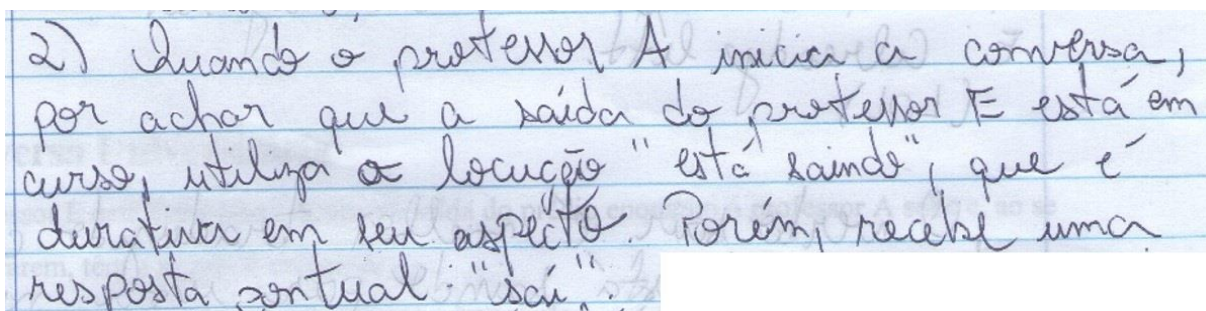 2) Quando o professor A inicia a conversa,
por achar que a saída do professor E está em
curso, utiliza a locução "está saindo", que é
durativa em seu aspecto. Porém, recebe uma
resposta pontual: "saí".